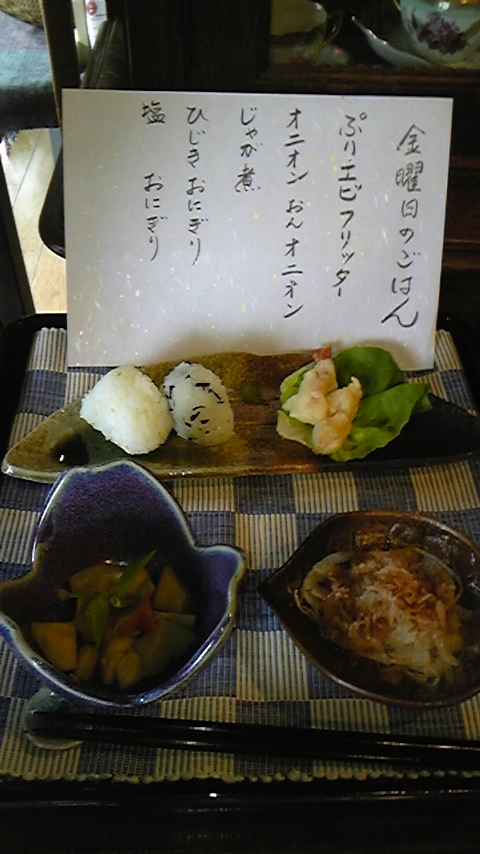 金曜日のごはん
ぷりエビフリッター
オニオン おんオニオン
じゃが煮
ひじきおにぎり
塩 おにぎり